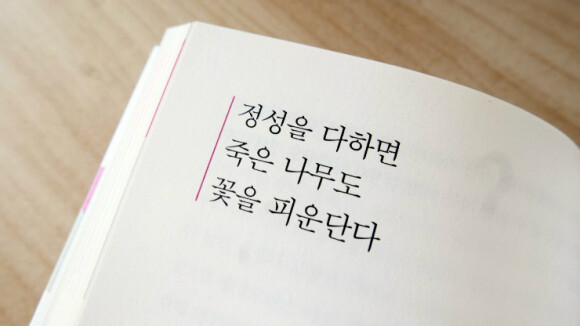 정성을 다하면
죽은 나무도
꽃을 피운단다